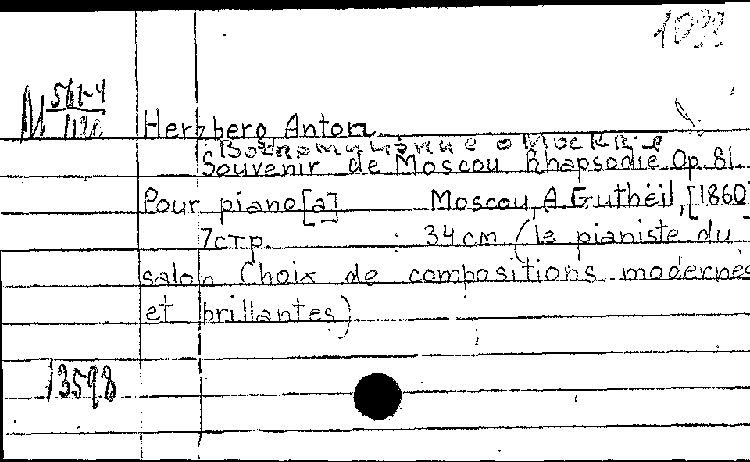 Herzberg Anton
Воспоминание о Москве
Souvenir de Moscou Rhapsodie Op. 81.
Pour piano[a] Moscou, A. Gutheil, [1860]
7 стр. 34 cm (le pianiste du
salon Choix de compositions modernes
et brillantes)
13598